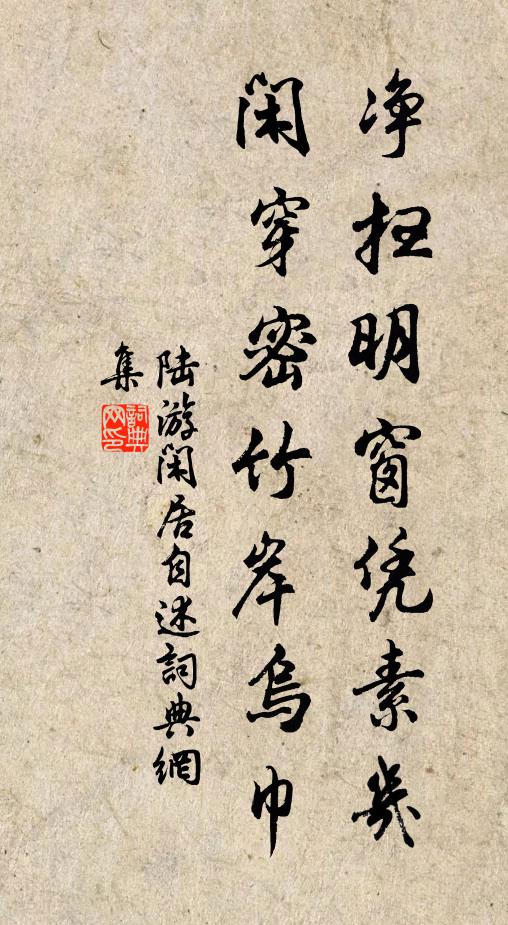 净扫明窗凭素几
闲穿密竹岸乌巾
陆游闲居自述詞典網
集
詞典网印